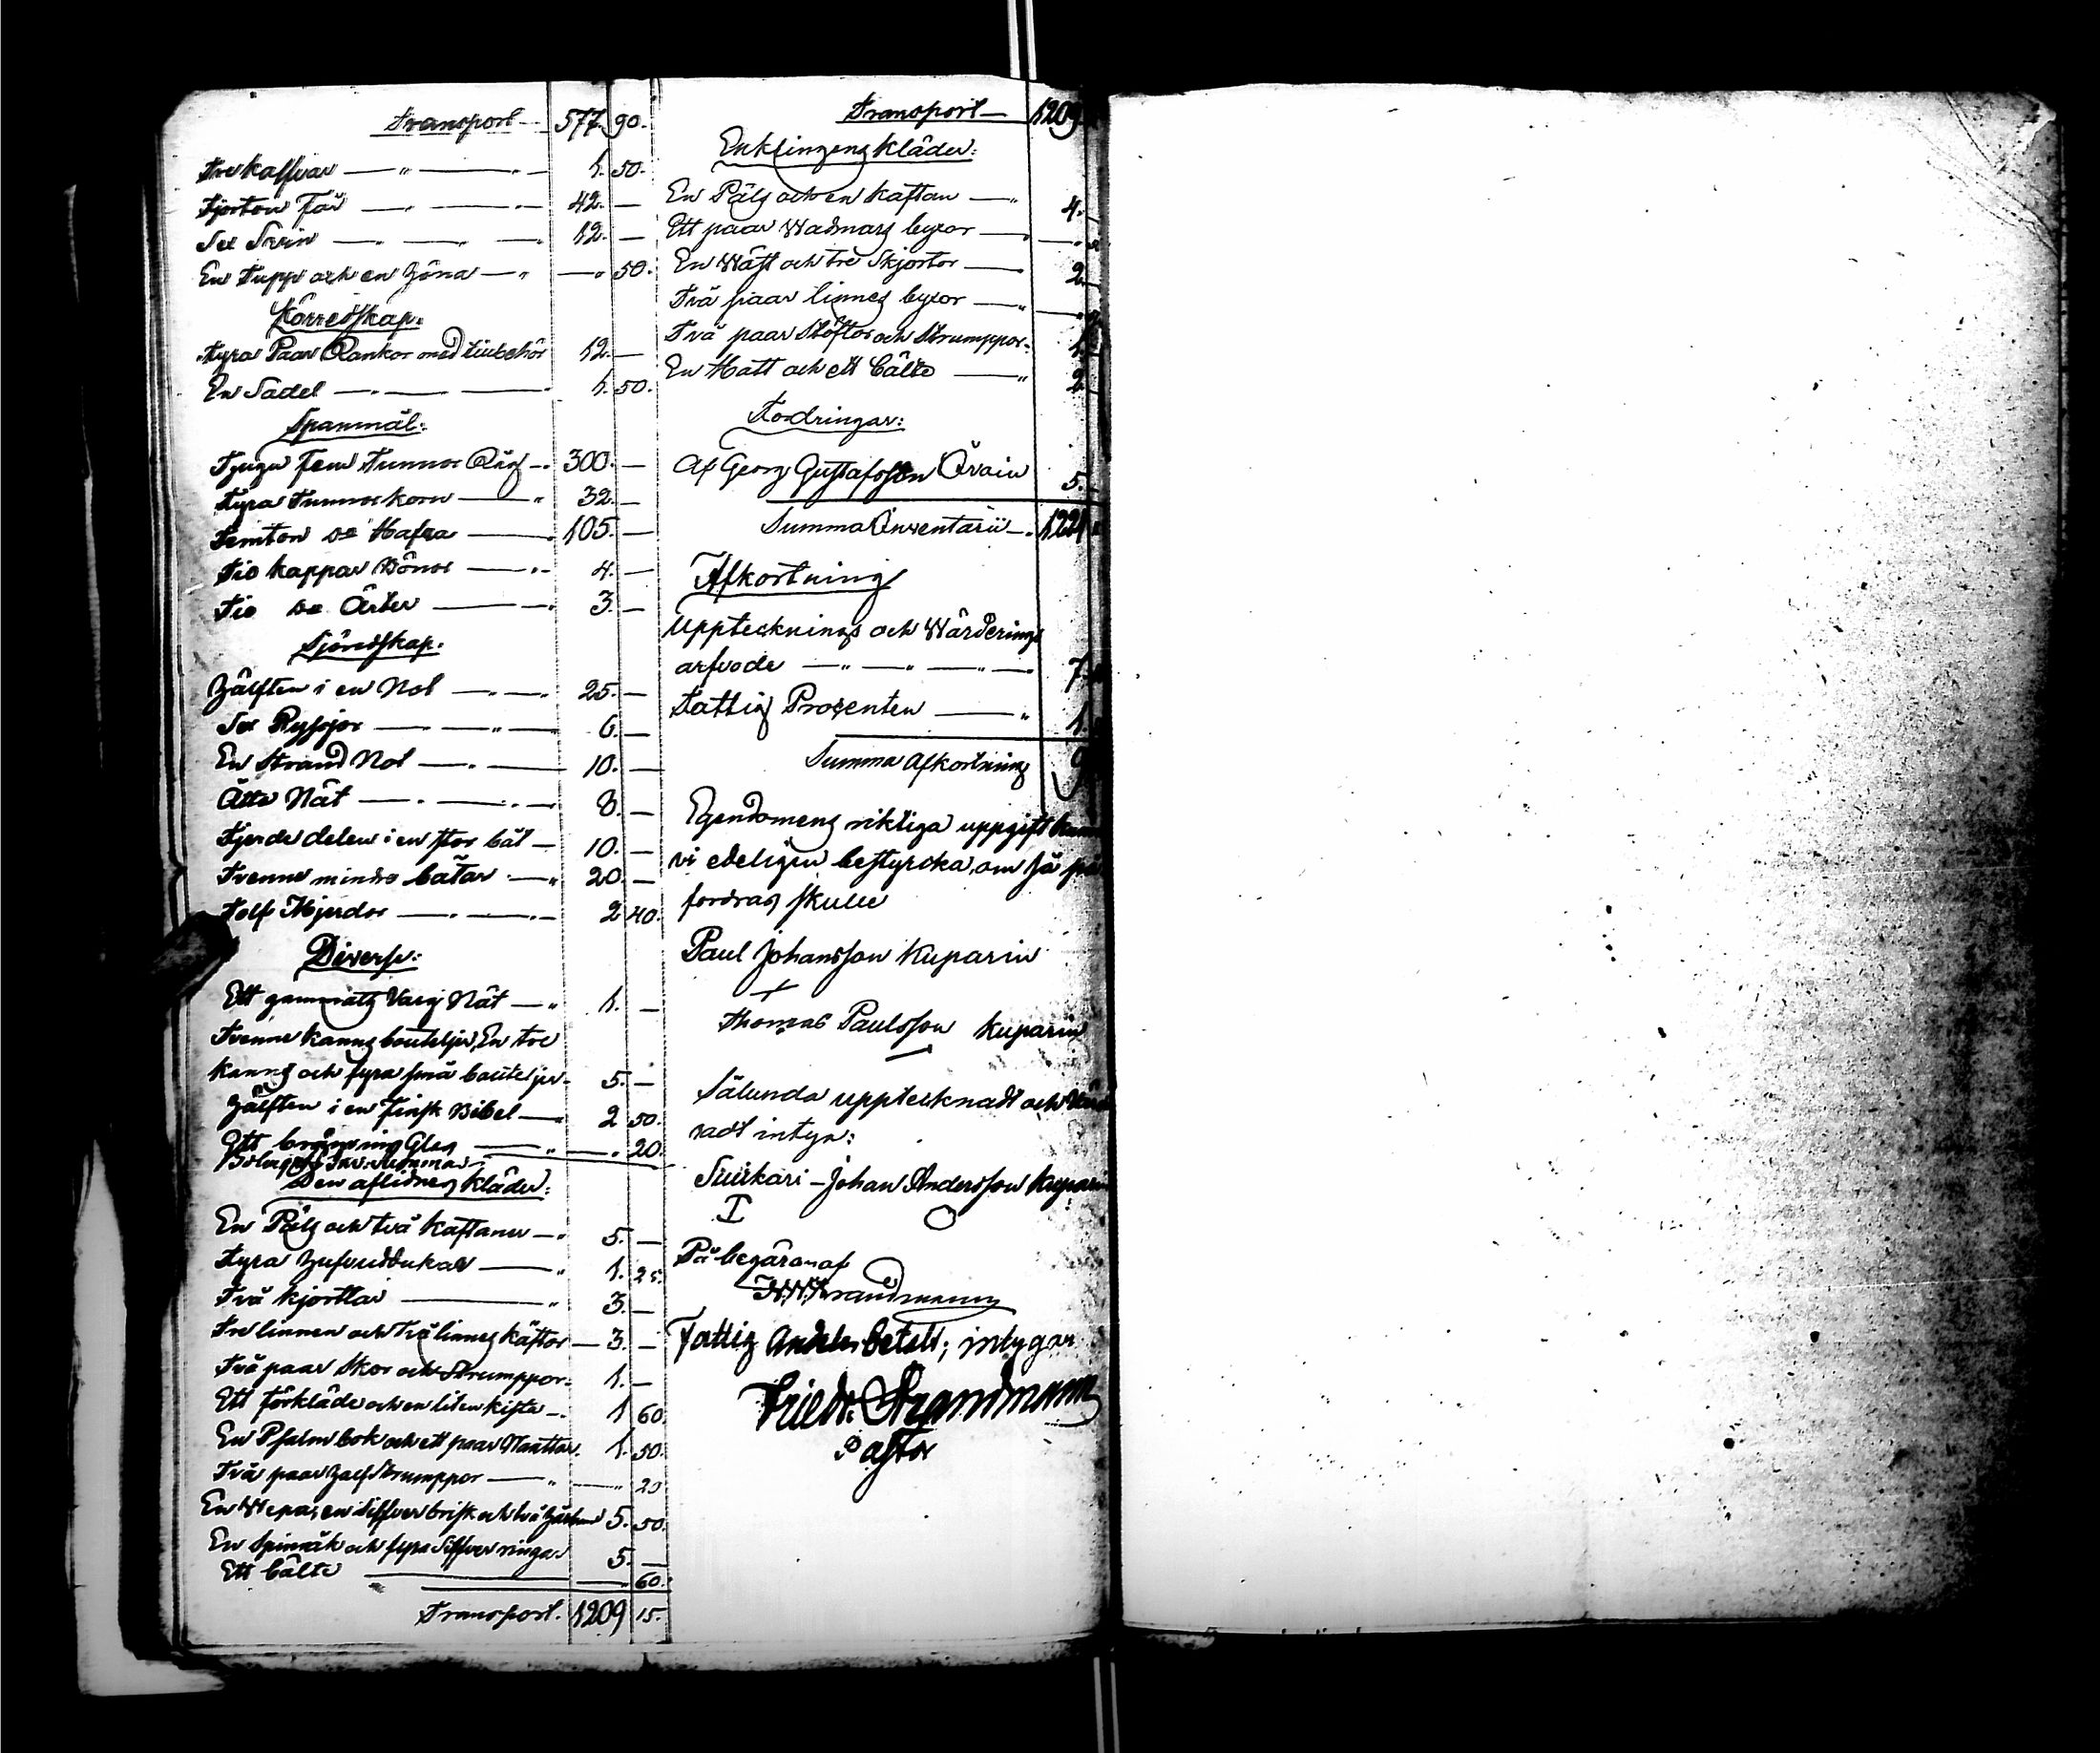 Transport — 577. 90.
Tre kalfvar — " — " — 1. 50.
Fjorton Får — " — " — 42. —
Sex Svin — " — " — 12. —
En Tupp och en Höna — " — " 50.
Körredskap:
Fyra Paar Rankor med tiubehör 12. —
En Sadel — " — 1. 50.
Spanmål:
Tjugu fem Tunnor Råg — " 300. —
Fyra Tunnor korn — " 32. —
Femton de Hafra — 105. —
Tio kappar Bönor — " 4. —
Tio de Ärter — " 3. —
Sjöredskap:
Hälften i en Not — " — " 25. —
Sex Ryssjor — " — " 6. —
En Strand Not — " — 10. —
Åtta Nät — " — " 8. —
Fjerde delen i en stor båt — 10. —
Tvenne mindre båtar — " 20. —
Tolf Mjerdor — " — " 2 40.
Diverse:
Ett gammalt Varg Nät — " 1. —
Tvenne kanns bouteljer, En tre
kanns och fyra små bouteljer 5. —
Hälften i en Finsk Bibel — " 2 50.
Ett bränvins Glas — " — " 20.
Den aflidnes kläder:
En Päls och två kaftaner — " 5. —
Fyra hufvuddukar — " 1. 25.
Två kjortlar — " 3. —
Tre linnen och två linnes käftor — 3. —
Två paar Skor och Strumppor 1. —
Ett förkläde och en liten kista — 1 60.
En Psalmbok och ett paar Wanttar 1. 50.
Två paar half Strumppor — " — 20
En Wepa, en Silfver brisk och två 5. 50.
En spinnråk och fyra Silfver ringar 5. —
Ett bälte — 60.
Transport. 1209 15.
Transport — 1209
Enklingens kläder:
En Päls och en kaftan — " 4.
Ett paar Wadmars byxor — "
En Wäst och tre Skjortor — 2.
Två paar linnes byxor — "
Två paar Stöflor och Strumppor 1.
En Hatt och ett bälte — " 2
Fordringar:
Af Georg Gustafsson 5.
Summa Inventarii — 1224
Afkortning
Uppteckninings och Wärderings
arfvode — " — " — " — 7.
Fattig Procenten — " 1.
Summa Afkortning 9
Egendomens riktiga uppgift
vi edeligen bestyrcka, om så på
fordras skulle
Paul Johansson Kuparin
+
Thomas Paulsson Kuparin
—
Sålunda upptecknadt och Wärde
radt intyga:
Suikari – Johan Andersson Kuparin
På begäran af
Strandmann
Fattig Andelen betalt; intygar
Friedr. Strandmann
Pastor